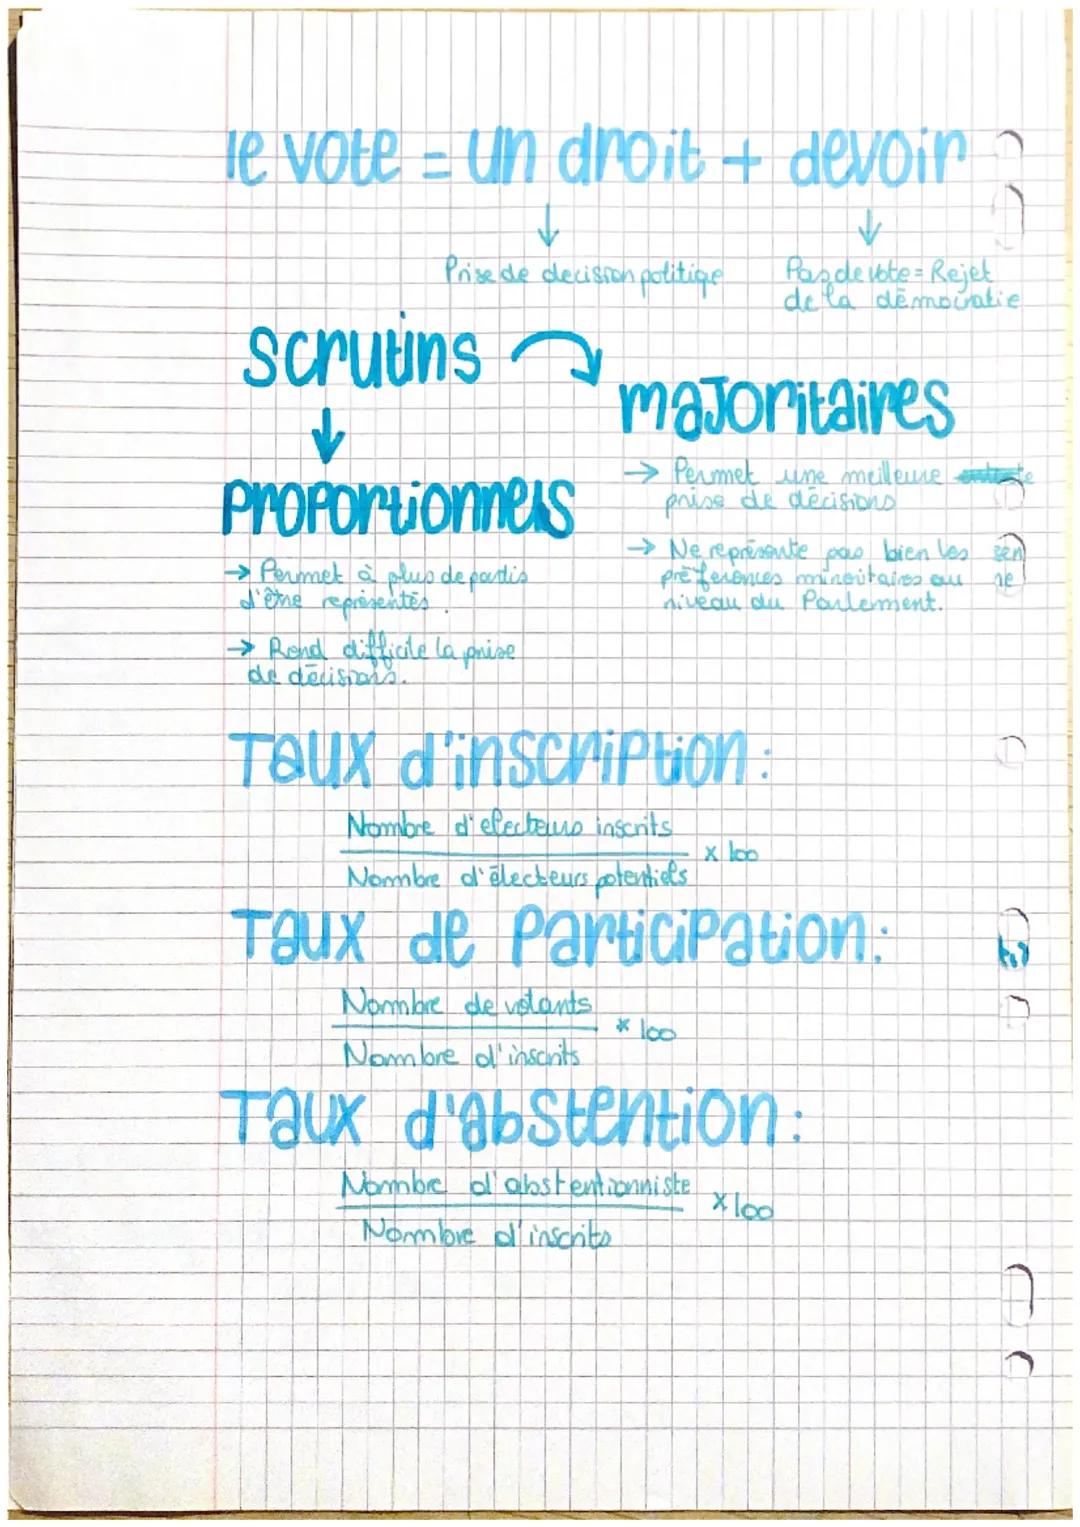 le vote = un droit + devoir
↓ ↓
Prise de decision politiqe
Pas de vote = Rejet
de la démocratie
scrutins
majoritaires
→ Permet une meilleure
prise de décisions
→ Ne représente pas bien les
préférences minoritaires au
niveau du Parlement.
↓
proportionnels
→ Permet à plus de partis
d'être représentés.
→ Rend difficile la prise
de décisions.
Taux d'inscription :
Nombre d'electeurs inscrits
x 100
Nombre d'électeurs potentiels
Taux de participation :
Nombre de votants
x 100
Nombre d'inscrits
Taux d'abstention :
Nombre d'abstentionniste
x 100
Nombre d'inscrits